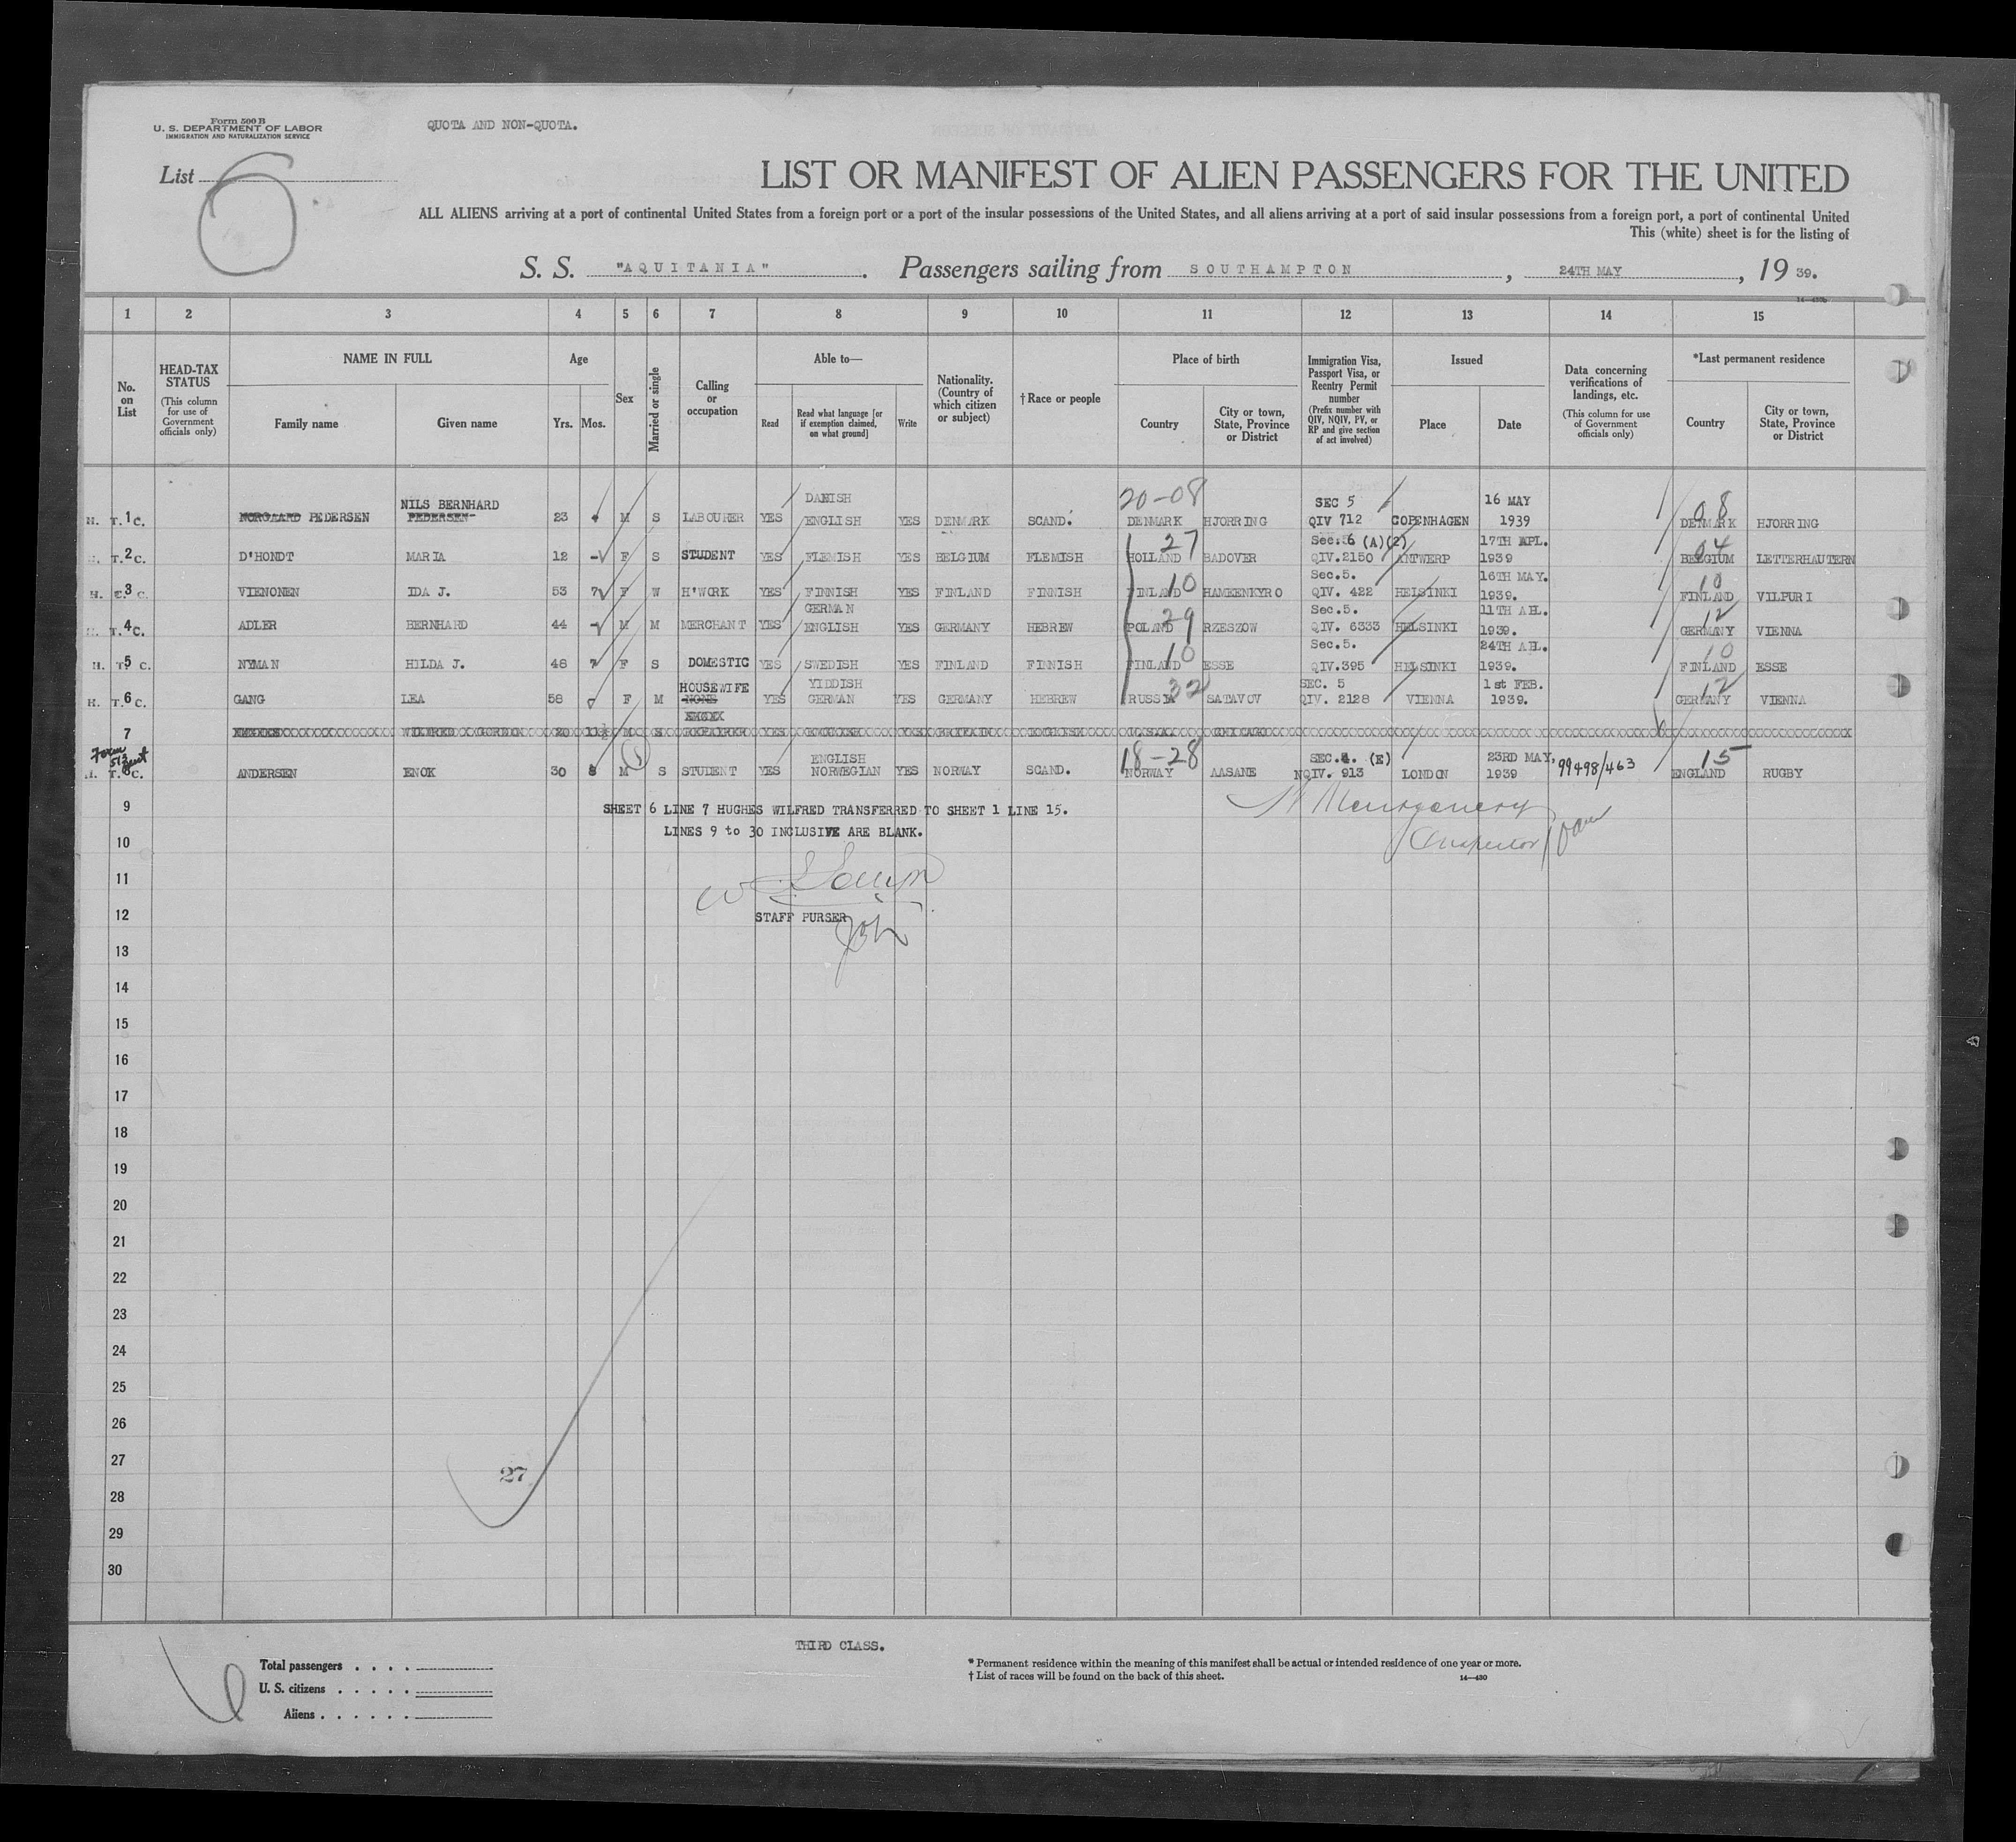 Form 500 B
U. S. DEPARTMENT OF LABOR
IMMIGRATION AND NATURALIZATION SERVICE
QUOTA AND NON-QUOTA.
List 6
LIST OR MANIFEST OF ALIEN PASSENGERS FOR THE UNITED
ALL ALIENS arriving at a port of continental United States from a foreign port or a port of the insular possessions of the United States, and all aliens arriving at a port of said insular possessions from a foreign port, a port of continental United
This (white) sheet is for the listing of
S. S. "AQUITANIA" . Passengers sailing from SOUTHAMPTON , 24TH MAY , 19 39.
1 2 3 4 5 6 7 8 9 10 11 12 13 14 15
No. on List
HEAD-TAX STATUS (This column for use of Government officials only)
NAME IN FULL
Family name Given name
Age
Yrs. Mos.
Sex
Married or single
Calling or occupation
Able to—
Read Read what language [or if exemption claimed, on what ground] Write
Nationality. (Country of which citizen or subject)
†Race or people
Place of birth
Country City or town, State, Province or District
Immigration Visa, Passport Visa, or Reentry Permit number (Prefix number with QIV, NQIV, PV, or RP and give section of act involved)
Issued
Place Date
Data concerning verifications of landings, etc. (This column for use of Government officials only)
*Last permanent residence
Country City or town, State, Province or District
NILS BERNHARD DANISH 20-08 SEC 5 16 MAY 08
H. T. 1 C. NORGAARD PEDERSEN PEDERSEN 23 M S LABOURER YES ENGLISH YES DENMARK SCAND. DENMARK HJORRING QIV 712 COPENHAGEN 1939 DENMARK HJORRING
27 Sec. 6 (A)(2) 17TH APL. 04
T. 2 C. D'HONDT MARIA 12 - F S STUDENT YES FLEMISH YES BELGIUM FLEMISH HOLLAND BADOVER QIV.2150 ANTWERP 1939 BELGIUM LETTERHAUTERN
10 Sec.5. 16TH MAY. 10
H. 3 C. VIENONEN IDA J. 53 7 F W H'WORK YES FINNISH YES FINLAND FINNISH FINLAND HAMEENKYRO QIV. 422 HELSINKI 1939. FINLAND VILPURI
GERMAN 29 Sec.5. 11TH AIL. 12
T. 4 C. ADLER BERNHARD 44 - M M MERCHANT YES ENGLISH YES GERMANY HEBREW POLAND RZESZOW QIV. 6333 HELSINKI 1939. GERMANY VIENNA
10 Sec.5. 24TH AIL. 10
H. T. 5 C. NYMAN HILDA J. 48 7 F S DOMESTIC YES SWEDISH YES FINLAND FINNISH FINLAND ESSE QIV.395 HELSINKI 1939. FINLAND ESSE
HOUSEWIFE YIDDISH 32 SEC. 5 1st FEB. 12
H. T. 6 C. GANG LEA 58 F M NONE YES GERMAN YES GERMANY HEBREW RUSSIA SATAVOV QIV. 2128 VIENNA 1939. GERMANY VIENNA
7 WILFRED GORDON 20 11½ M S REPAIRER YES ENGLISH YES BRITAIN ENGLISH U.S.A. CHICAGO
Form 512 ENGLISH 18-28 SEC.4. (E) 23RD MAY, 15
T. 8 C. ANDERSEN ENOK 30 8 M S STUDENT YES NORWEGIAN YES NORWAY SCAND. NORWAY AASANE NQIV. 913 LONDON 1939 99498/463 ENGLAND RUGBY
9 SHEET 6 LINE 7 HUGHES WILFRED TRANSFERRED TO SHEET 1 LINE 15.
LINES 9 to 30 INCLUSIVE ARE BLANK.
Montgomery
Inspector
10
11
12 STAFF PURSER
13
14
15
16
17
18
19
20
21
22
23
24
25
26
27
27
28
29
30
THIRD CLASS.
6
Total passengers . . . .
U. S. citizens . . . . .
Aliens . . . . . .
* Permanent residence within the meaning of this manifest shall be actual or intended residence of one year or more.
† List of races will be found on the back of this sheet.
14—430